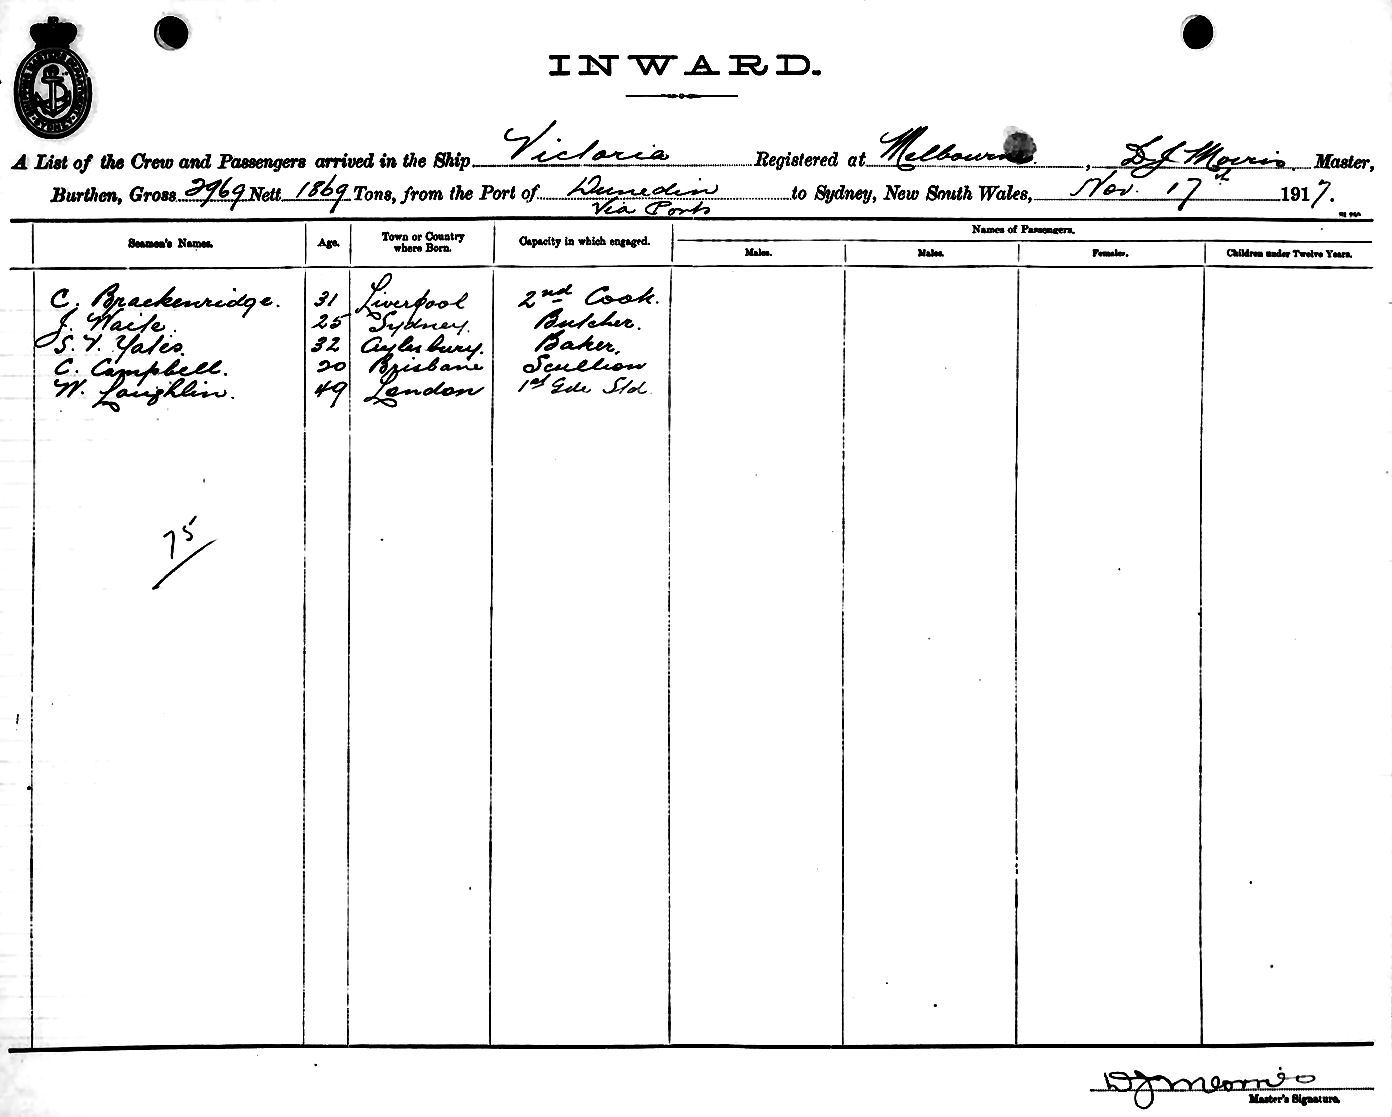 INWARD.
A List of the Crew and Passengers arrived in the Ship Victoria Registered at Melbourne, D J Morris Master,
Burthen, Gross 2969 Nett 1869 Tons, from the Port of Dunedin to Sydney, New South Wales, Nov. 17th 1917.
Via Ports
Seamen's Names. Age. Town or Country where Born. Capacity in which engaged. Names of Passengers.
Males. Males. Females. Children under Twelve Years.
C. Brackenridge. 31 Liverpool 2nd Cook.
J. Waite. 25 Sydney. Butcher.
S. V. Yates. 32 Aylesbury. Baker.
C. Campbell. 20 Brisbane Scullion
W. Loughlin. 49 London 1st Gde Std
75
D J Morris
Master's Signature.